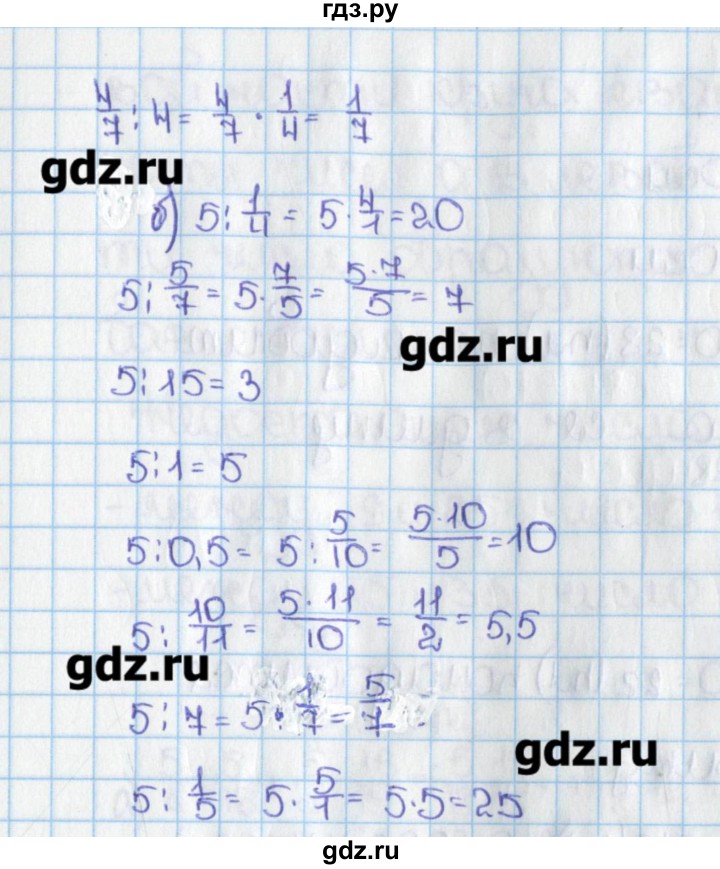 гдз.ру
4/7 : 4 = 4/7 · 1/4 = 1/7
gdz.ru
б) 5 : 1/4 = 5 · 4/1 = 20
5 : 5/7 = 5 · 7/5 = 5·7/5 = 7
gdz.ru
5 : 15 = 3
5 : 1 = 5
5 : 0,5 = 5 : 5/10 = 5·10/5 = 10
5 : 10/11 = 5·11/10 = 11/2 = 5,5
gdz.ru
5 : 7 = 5 · 1/7 = 5/7 .
gdz.ru
5 : 1/5 = 5 · 5/1 = 5·5 = 25
gdz.ru